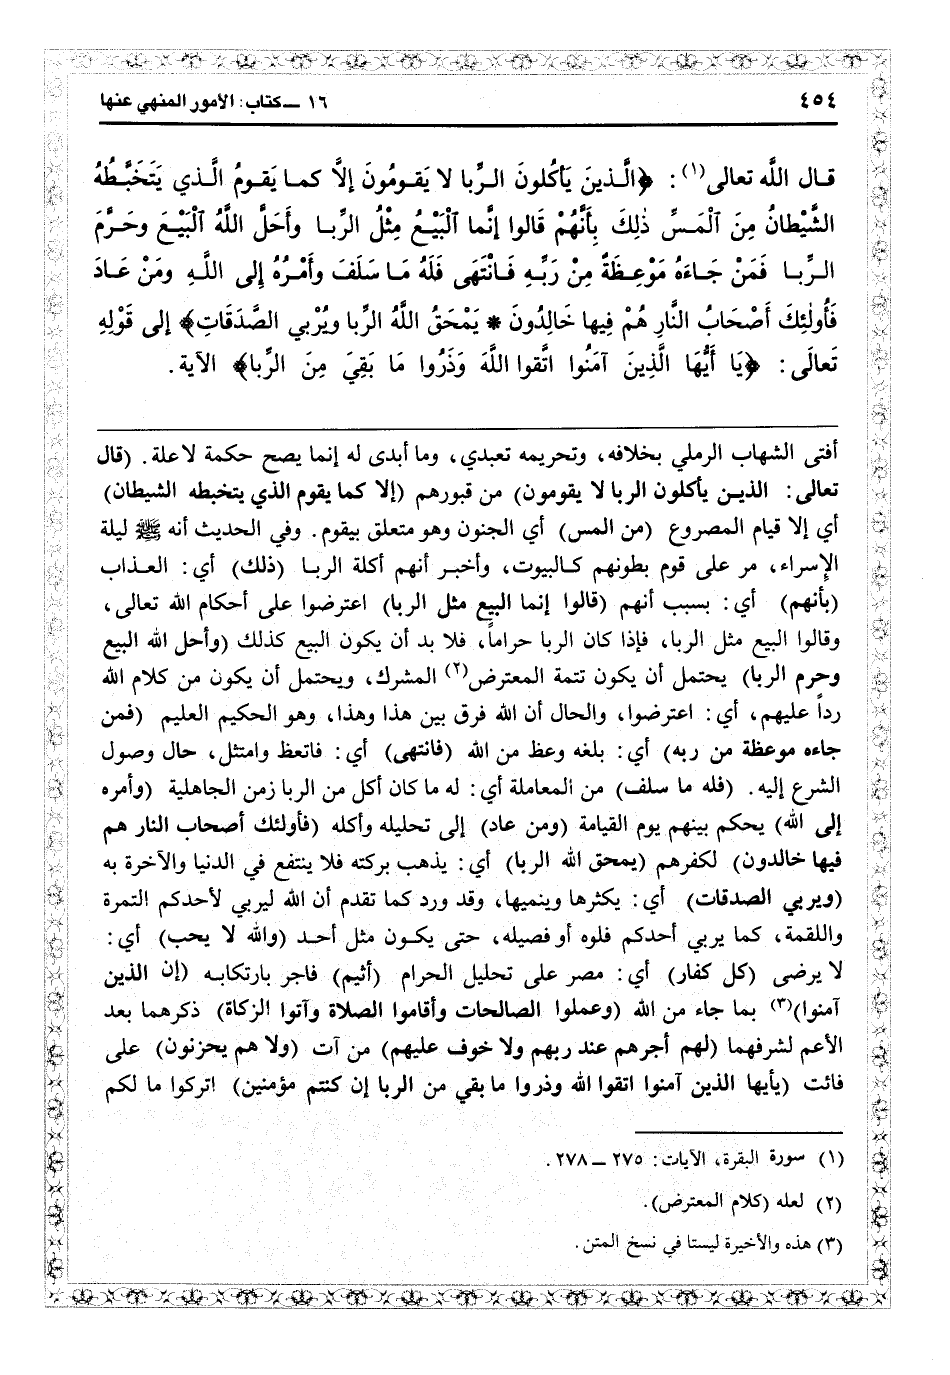 ٤٥٤
١٦ ــ كتاب: الأمور المنهي عنها
قال اللَّه تعالى(١): ﴿الَّـذينَ يَأكُلونَ الـرِّبا لا يَقـومُونَ إلاَّ كمـا يَقـومُ الَّـذي يَتَخَبَّطُهُ
الشَّيْطانُ مِنَ ٱلْمَسِّ ذٰلِكَ بِأَنَّهُمْ قَالوا إنَّما ٱلْبَيْـعُ مِثْلُ الرِّبـا وأَحَلَّ اللَّهُ ٱلْبَيْعَ وحَرَّمَ
الـرِّبـا فَمَنْ جَـاءَهُ مَوْعِظَةٌ مِنْ رَبِّـهِ فَـانْتَهَى فَلَهُ مَـا سَلَفَ وأَمْـرُهُ إلى اللَّـهِ ومَنْ عَـادَ
فَأُولٰئِكَ أَصْحَابُ النَّارِ هُمْ فِيها خَالِدُونَ * يَمْحَقُ اللَّهُ الرِّبا ويُرْبي الصَّدَقَاتِ﴾ إلى قَوْلِهِ
تَعالَى: ﴿يَا أَيُّهَا الَّذِينَ آمَنُوا اتَّقوا اللَّهَ وَذَرُوا مَا بَقِيَ مِنَ الرِّبا﴾ الآية.
أفتى الشهاب الرملي بخلافه، وتحريمه تعبدي، وما أبدى له إنما يصح حكمة لا علة. (قال
تعالى: الذيـن يأكلون الربا لا يقومون) من قبورهم (إلا كما يقوم الذي يتخبطه الشيطان)
أي إلا قيام المصروع (من المس) أي الجنون وهو متعلق بيقوم. وفي الحديث أنه ﷺ ليلة
الإسراء، مر على قوم بطونهم كـالبيوت، وأخبـر أنهم أكلة الربـا (ذلك) أي: العـذاب
(بأنهم) أي: بسبب أنهم (قالوا إنما البيع مثل الربا) اعترضوا على أحكام الله تعالى،
وقالوا البيع مثل الربا، فإذا كان الربا حراماً، فلا بد أن يكون البيع كذلك (وأحل الله البيع
وحرم الربا) يحتمل أن يكون تتمة المعترض(٢) المشرك، ويحتمل أن يكون من كلام الله
رداً عليهم، أي: اعترضوا، والحال أن الله فرق بين هذا وهذا، وهو الحكيم العليم (فمن
جاءه موعظة من ربه) أي: بلغه وعظ من الله (فانتهى) أي: فاتعظ وامتثل، حال وصول
الشرع إليه. (فله ما سلف) من المعاملة أي: له ما كان أكل من الربا زمن الجاهلية (وأمره
إلى الله) يحكم بينهم يوم القيامة (ومن عاد) إلى تحليله وأكله (فأولئك أصحاب النار هم
فيها خالدون) لكفرهم (يمحق الله الربا) أي: يذهب بركته فلا ينتفع في الدنيا والآخرة به
(ويربي الصدقات) أي: يكثرها وينميها، وقد ورد كما تقدم أن الله ليربي لأحدكم التمرة
واللقمة، كما يربي أحدكم فلوه أو فصيله، حتى يكـون مثل أحـد (والله لا يحب) أي:
لا يرضى (كل كفار) أي: مصر على تحليل الحرام (أثيم) فاجر بارتكابـه (إن الذين
آمنوا)(٣) بما جاء من الله (وعملوا الصالحات وأقاموا الصلاة وآتوا الزكاة) ذكرهما بعد
الأعم لشرفهما (لهم أجرهم عند ربهم ولا خوف عليهم) من آت (ولا هم يحزنون) على
فائت (يأيها الذين آمنوا اتقوا الله وذروا ما بقي من الربا إن كنتم مؤمنين) اتركوا ما لكم
(١) سورة البقرة، الآيات: ٢٧٥ ــ ٢٧٨.
(٢) لعله (كلام المعترض).
(٣) هذه والأخيرة ليستا في نسخ المتن.